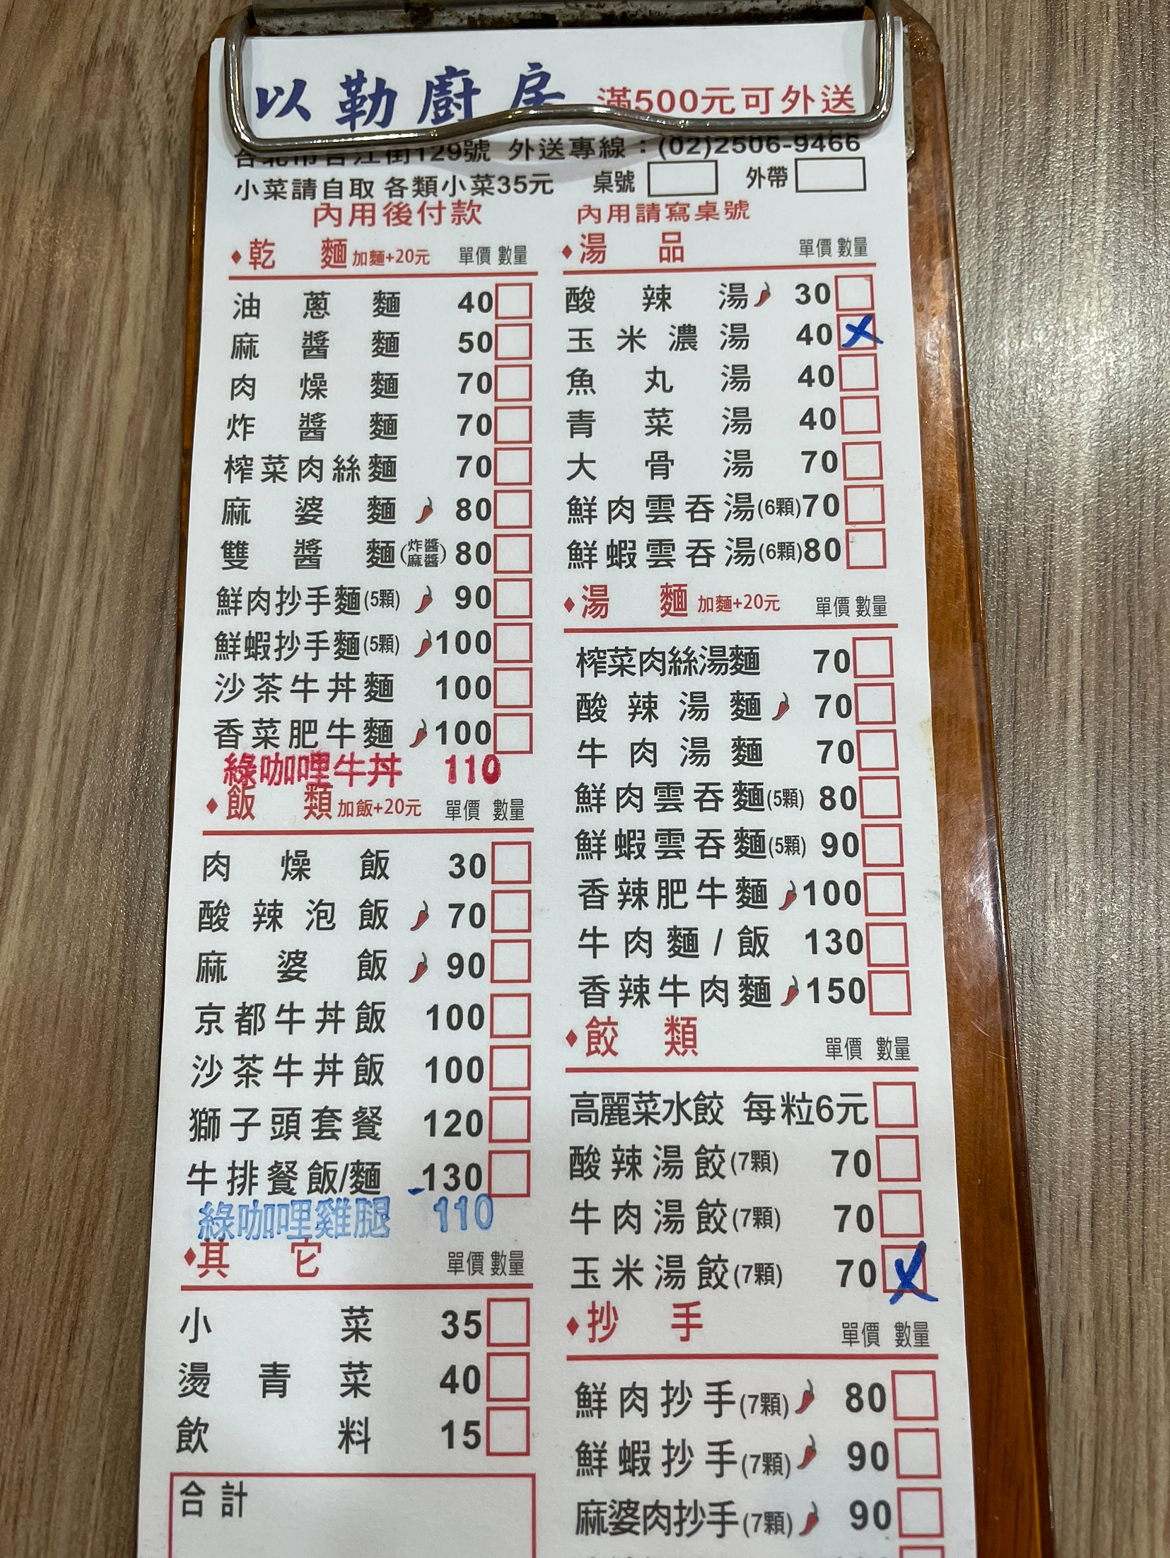 以勒廚房 滿500元可外送
台北市合江街129號 外送專線：(02)2506-9466
小菜請自取 各類小菜35元 桌號 外帶
內用後付款 內用請寫桌號
♦乾麵 加麵+20元 單價 數量
油蔥麵 40
麻醬麵 50
肉燥麵 70
炸醬麵 70
榨菜肉絲麵 70
麻婆麵 80
雙醬麵(炸醬麻醬) 80
鮮肉抄手麵(5顆) 90
鮮蝦抄手麵(5顆) 100
沙茶牛丼麵 100
香菜肥牛麵 100
綠咖哩牛丼 110
♦飯類 加飯+20元 單價 數量
肉燥飯 30
酸辣泡飯 70
麻婆飯 90
京都牛丼飯 100
沙茶牛丼飯 100
獅子頭套餐 120
牛排餐飯/麵 130
綠咖哩雞腿 110
♦其它 單價 數量
小菜 35
燙青菜 40
飲料 15
合計
♦湯品 單價 數量
酸辣湯 30
玉米濃湯 40 X
魚丸湯 40
青菜湯 40
大骨湯 70
鮮肉雲吞湯(6顆) 70
鮮蝦雲吞湯(6顆) 80
♦湯麵 加麵+20元 單價 數量
榨菜肉絲湯麵 70
酸辣湯麵 70
牛肉湯麵 70
鮮肉雲吞麵(5顆) 80
鮮蝦雲吞麵(5顆) 90
香辣肥牛麵 100
牛肉麵/飯 130
香辣牛肉麵 150
♦餃類 單價 數量
高麗菜水餃 每粒6元
酸辣湯餃(7顆) 70
牛肉湯餃(7顆) 70
玉米湯餃(7顆) 70 X
♦抄手 單價 數量
鮮肉抄手(7顆) 80
鮮蝦抄手(7顆) 90
麻婆肉抄手(7顆) 90